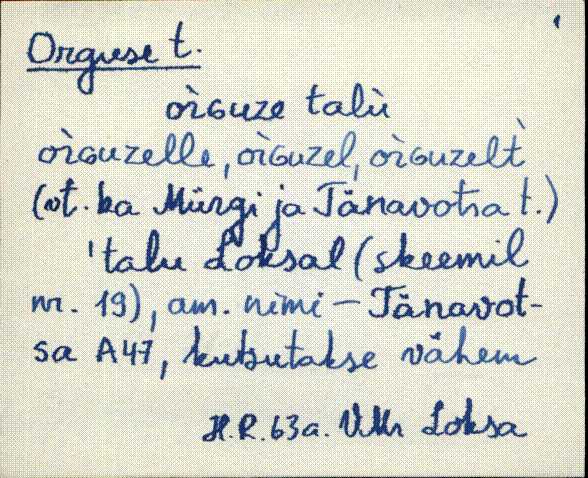 Orguse t.
òrɢuze talù
òrɢuzelle, òrɢuzel, òrɢuzelt̀
(vt. ka Mürgi ja Tänavotsa t.)
'talu Loksal (skeemil
nr. 19), am. nimi – Tänavot-
sa A47, kutsutakse vähem
H.R. 63a. VMr Loksa